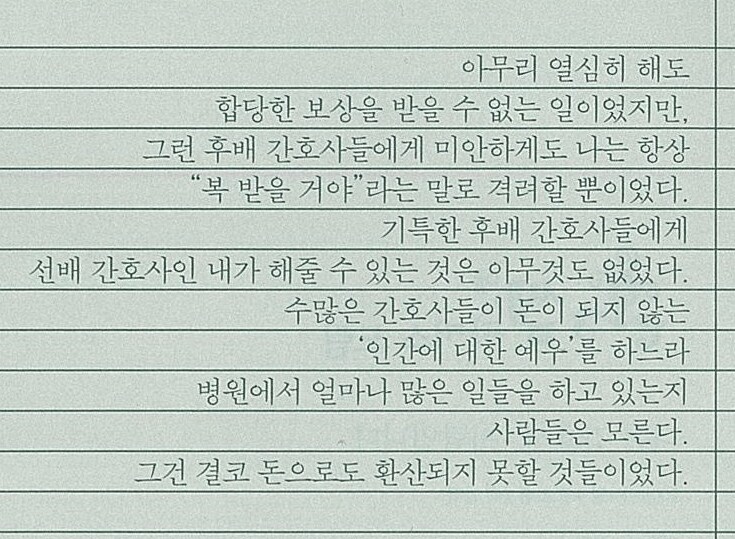 아무리 열심히 해도
합당한 보상을 받을 수 없는 일이었지만,
그런 후배 간호사들에게 미안하게도 나는 항상
“복 받을 거야”라는 말로 격려할 뿐이었다.
기특한 후배 간호사들에게
선배 간호사인 내가 해줄 수 있는 것은 아무것도 없었다.
수많은 간호사들이 돈이 되지 않는
‘인간에 대한 예우’를 하느라
병원에서 얼마나 많은 일들을 하고 있는지
사람들은 모른다.
그건 결코 돈으로도 환산되지 못할 것들이었다.